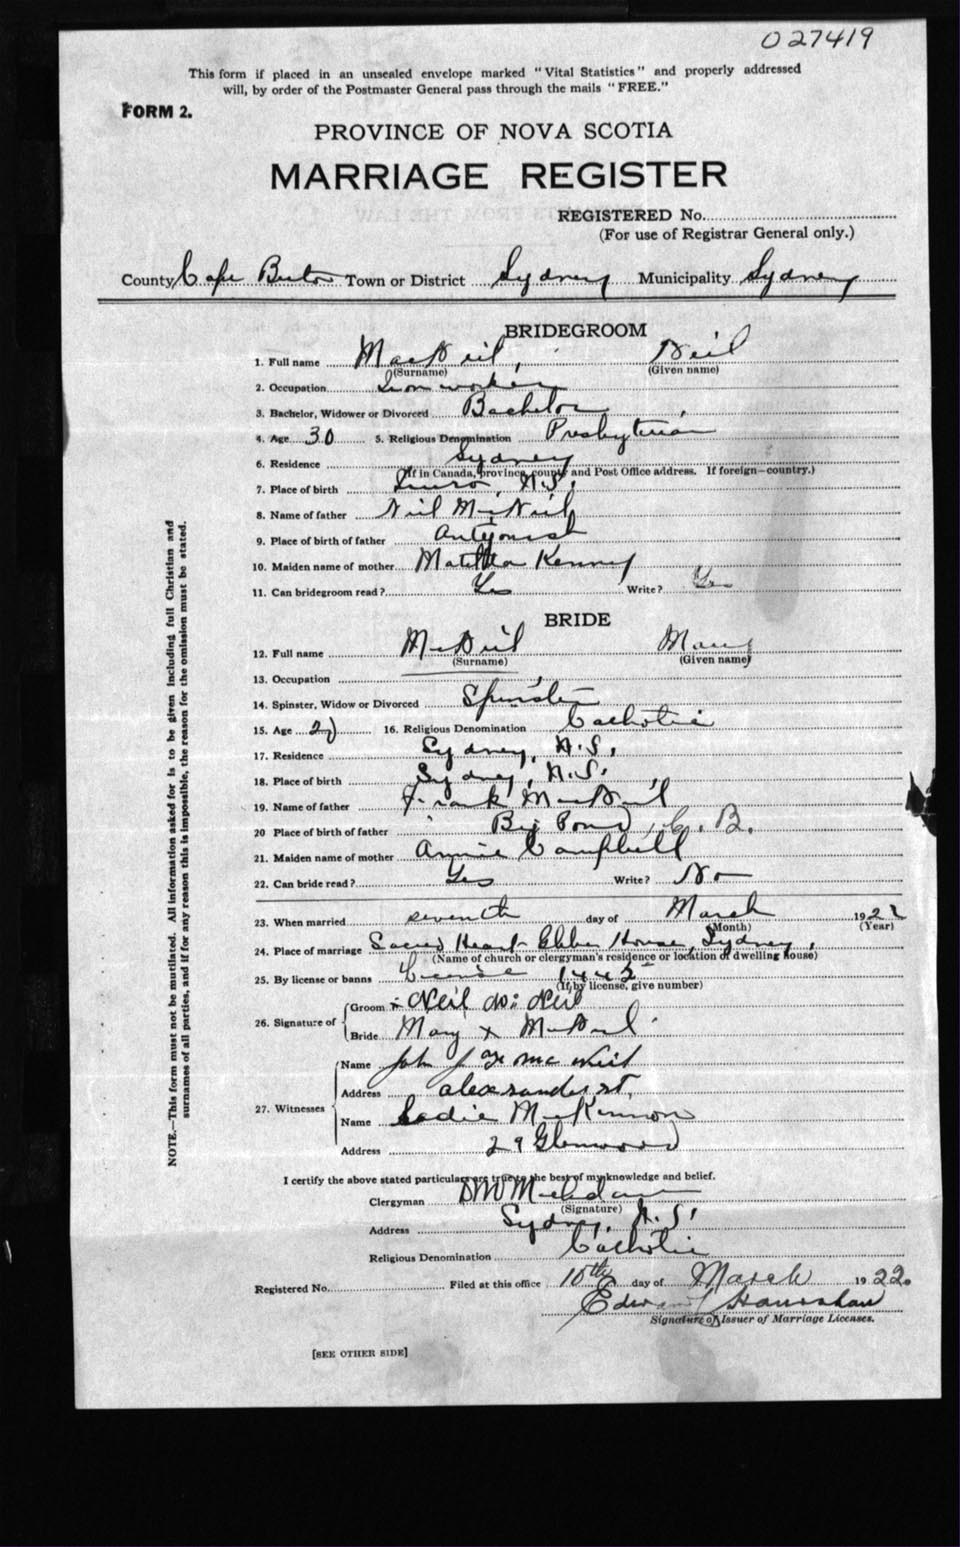 027419
This form if placed in an unsealed envelope marked "Vital Statistics" and properly addressed
will, by order of the Postmaster General pass through the mails "FREE."
FORM 2.
PROVINCE OF NOVA SCOTIA
MARRIAGE REGISTER
REGISTERED No.
(For use of Registrar General only.)
County Cape Breton Town or District Sydney Municipality Sydney
BRIDEGROOM
1. Full name MacNeil, Neil
(Surname) (Given name)
2. Occupation Iron worker
3. Bachelor, Widower or Divorced Bachelor
4. Age 30 5. Religious Denomination Presbyterian
6. Residence Sydney
(If in Canada, province, county and Post Office address. If foreign—country.)
7. Place of birth Truro, N.S.
8. Name of father Neil McNeil
9. Place of birth of father Antigonish
10. Maiden name of mother Matilda Kenney
11. Can bridegroom read? Yes Write? Yes
BRIDE
12. Full name McNeil Mary
(Surname) (Given name)
13. Occupation
14. Spinster, Widow or Divorced Spinster
15. Age 16. Religious Denomination Catholic
17. Residence Sydney, N.S.
18. Place of birth Sydney, N.S.
19. Name of father Frank MacNeil
20 Place of birth of father Big Pond, C.B.
21. Maiden name of mother Annie Campbell
22. Can bride read? Yes Write? No
23. When married seventh day of March 1922
(Month) (Year)
24. Place of marriage Sacred Heart Glebe House, Sydney,
(Name of church or clergyman's residence or location of dwelling house)
25. By license or banns License 1445
(If by license, give number)
26. Signature of
Groom Neil Mc Neil
Bride Mary x McNeil
27. Witnesses
Name John J Mc Neil
Address alexsander st.
Name Sadie McKinnon
Address 29 Glenwood
I certify the above stated particulars are true to the best of my knowledge and belief.
Clergyman
(Signature)
Address Sydney, N.S.
Religious Denomination Catholic
Registered No. Filed at this office 10th day of March 1922.
Edward
Signature of Issuer of Marriage Licenses.
[SEE OTHER SIDE]
NOTE.—This form must not be mutilated. All information asked for is to be given including full Christian and
surnames of all parties, and if for any reason this is impossible, the reason for the omission must be stated.